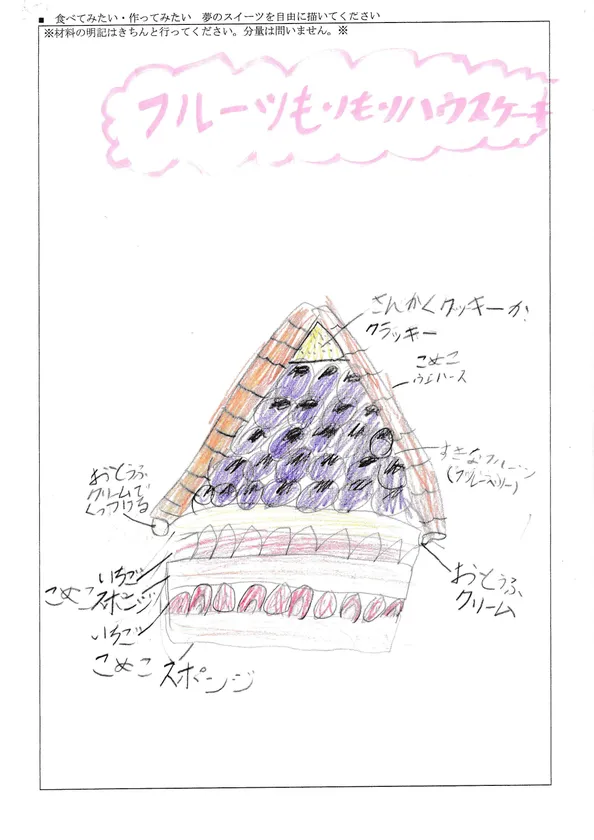 ■ 食べてみたい・作ってみたい 夢のスイーツを自由に描いてください
※材料の明記はきちんと行ってください。分量は問いません。※
フルーツもりもりハウスケーキ
さんかくクッキーか
クラッキー
こめこ
ウエハース
すきなフルーツ
(ブルーベリー)
おとうふ
クリームで
くっつける
おとうふ
クリーム
いちご
こめこスポンジ
いちご
こめこ スポンジ